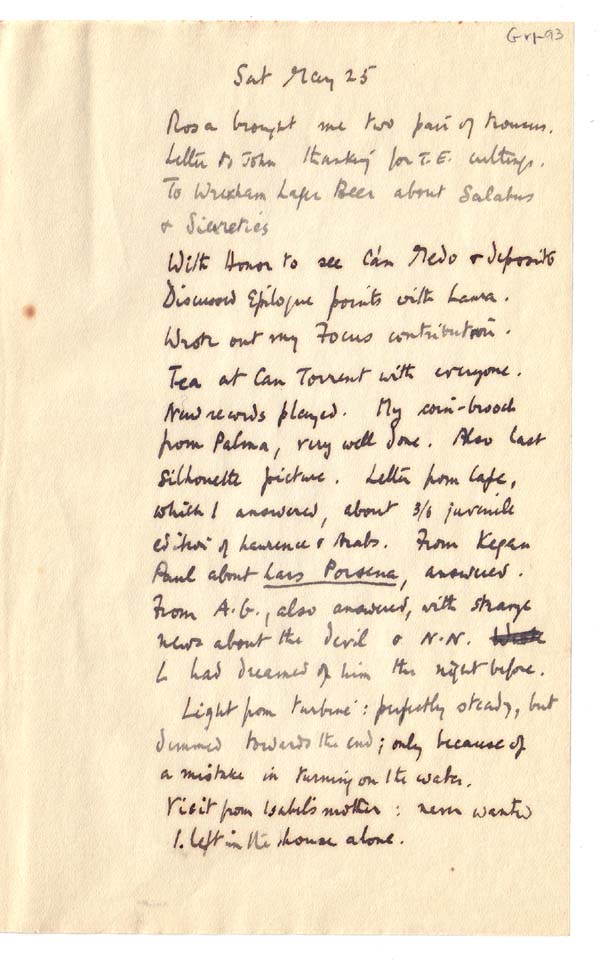 Grf 93
Sat May 25
Rosa brought me two pair of trousers.
Letter to John thanking for T.E. cuttings.
To Wrexham Lager Beer about Salabus
& Sicreties
With Honor to see Can Medo & deposito
Discussed Epilogue points with Laura.
Wrote out my Focus contribution.
Tea at Can Torrent with everyone.
New records played. My coin-brooch
from Palma, very well done. Also last
silhouette picture. Letter from Cape,
which I answered, about 3/6 juvenile
edition of Lawrence & Arabs. From Kegan
Paul about Lars Porsena, answered.
From A.G., also answered, with strange
news about the devil & N.N.
L had dreamed of him the night before.
Light from turbine: perfectly steady, but
dimmed towards the end; only because of
a mistake in turning on the water.
Visit from Isabel's mother: never wanted
I. left in the house alone.